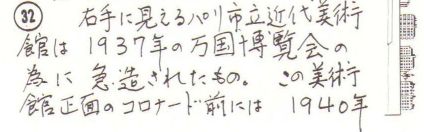 ㉜ 右手に見えるパリ市立近代美術
館は1937年の万国博覧会の
為に急造されたもの。この美術
館正面のコロナード前には 1940年